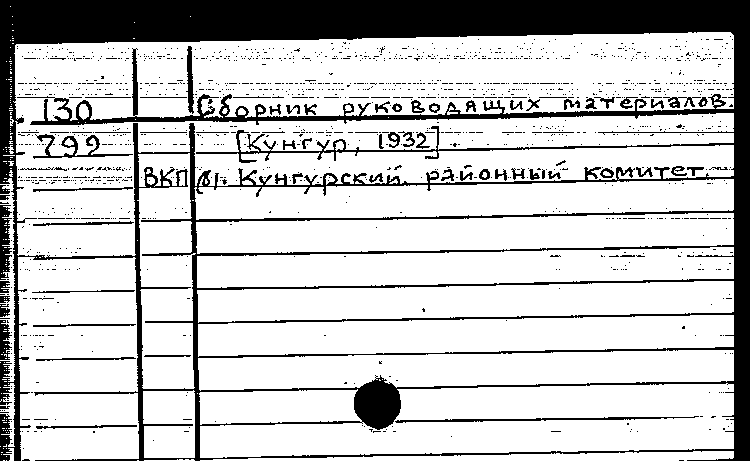 130 Сборник руководящих материалов.
799 [Кунгур, 1932].
ВКП(б). Кунгурский районный комитет.